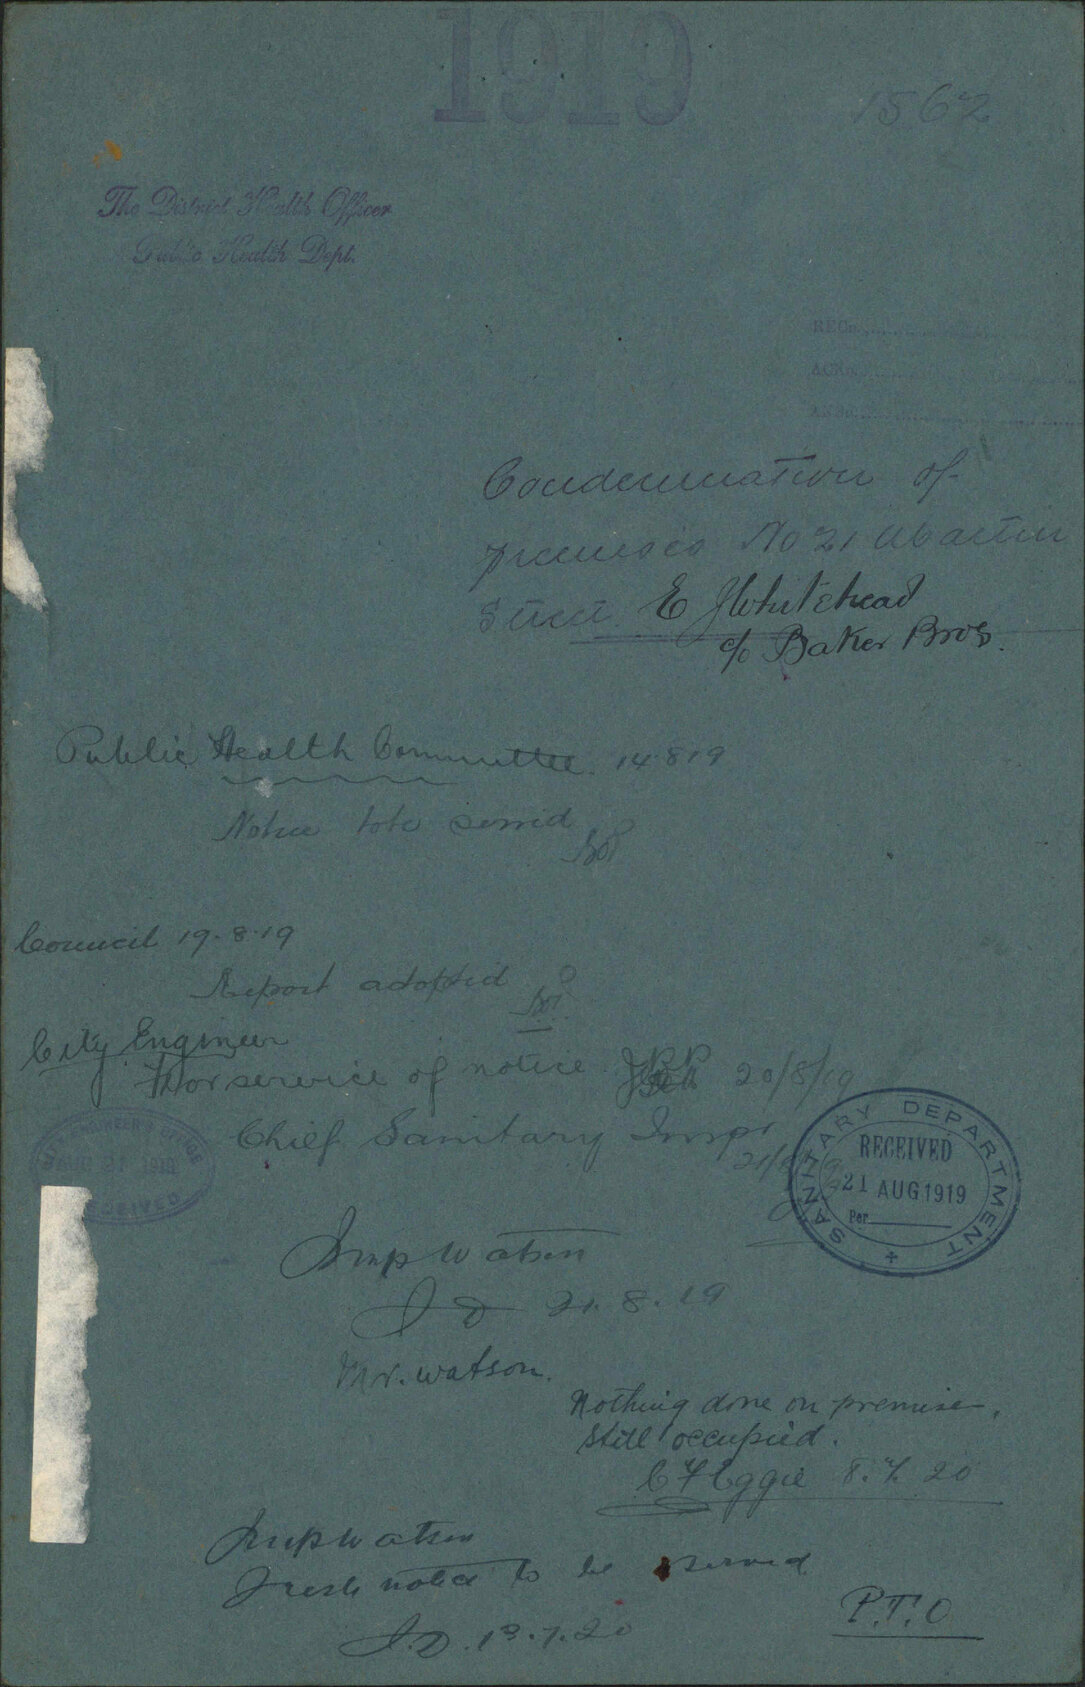 1919
1562
The District Health Officer
Public Health Dept.
REC
ACK
ANS
Condemnation of
premises No 21
Street. E J Whitehead
c/o Baker Bros.
Public Health Committee. 14 8 19
Notice to be served
Council 19.8.19
Report adopted
City Engineer
For service of notice 20/8/19
Chief Sanitary Inspr
21/8/19
CITY ENGINEER'S OFFICE
AUG 21 1919
RECEIVED
SANITARY DEPARTMENT
RECEIVED
21 AUG 1919
Per
Insp Watson
J D 21.8.19
Mr. Watson.
Nothing done on premise,
still occupied.
C F Eggie 8.7.20
Insp Watson
Fresh notice to be served
J.D. 13.7.20
P.T.O